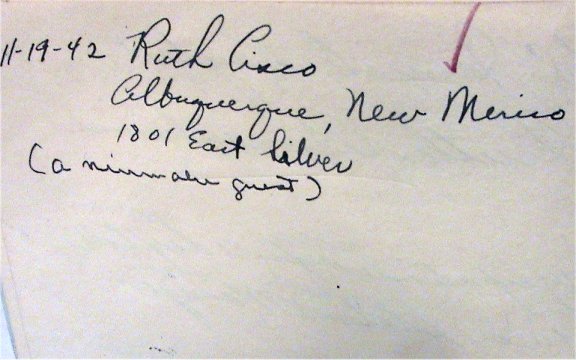 11-19-42 Ruth Cisco
Albuquerque, New Mexico
1801 East Silver
(a guest)